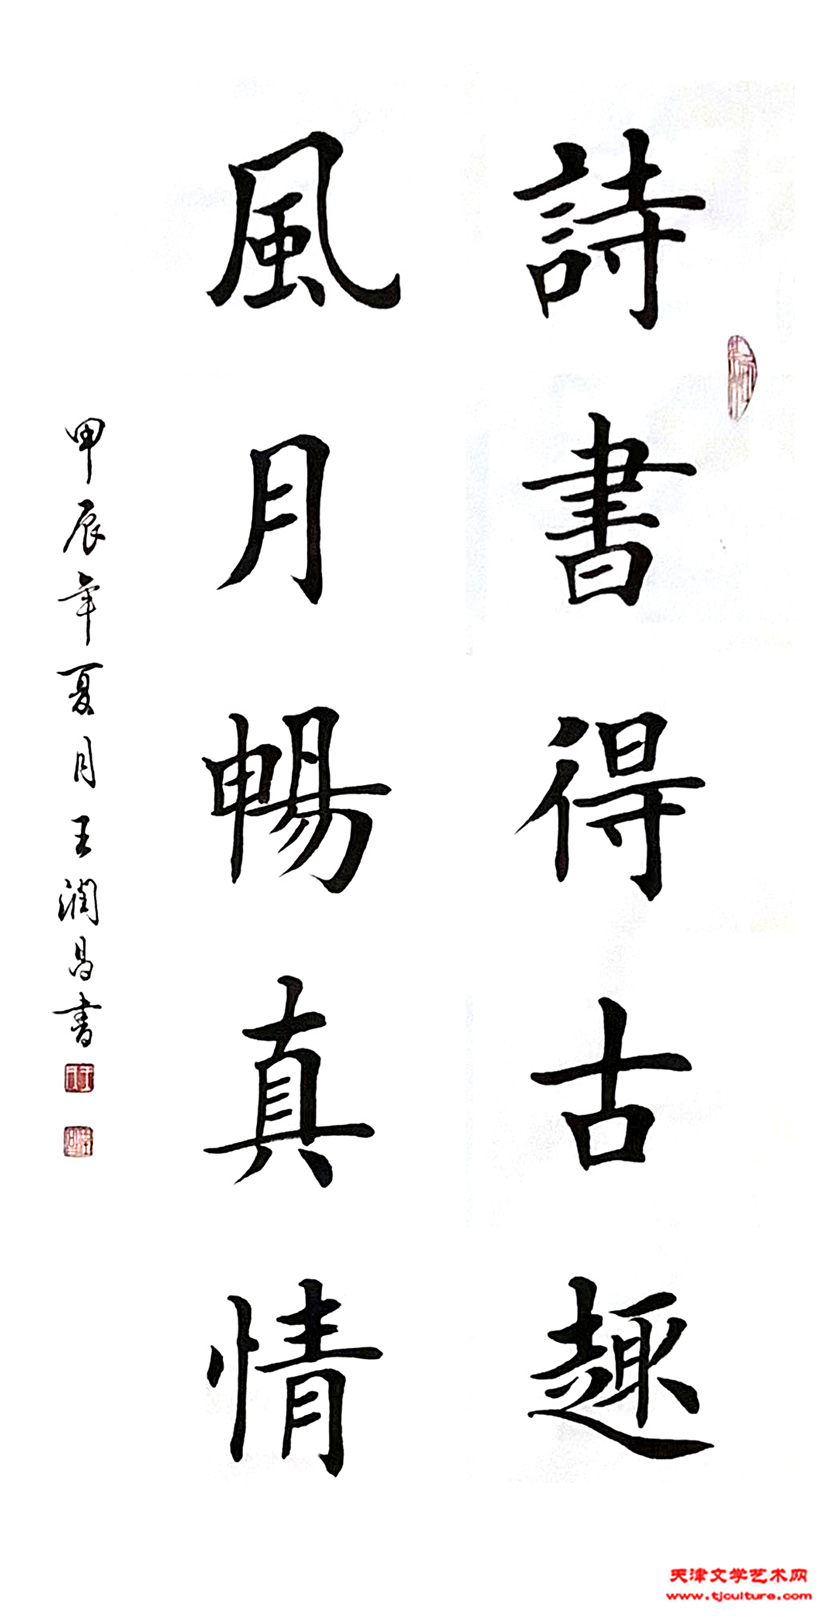 詩書得古趣
風月暢真情
甲辰年夏月王潤昌书
天津文学艺术网
www.tjculture.com